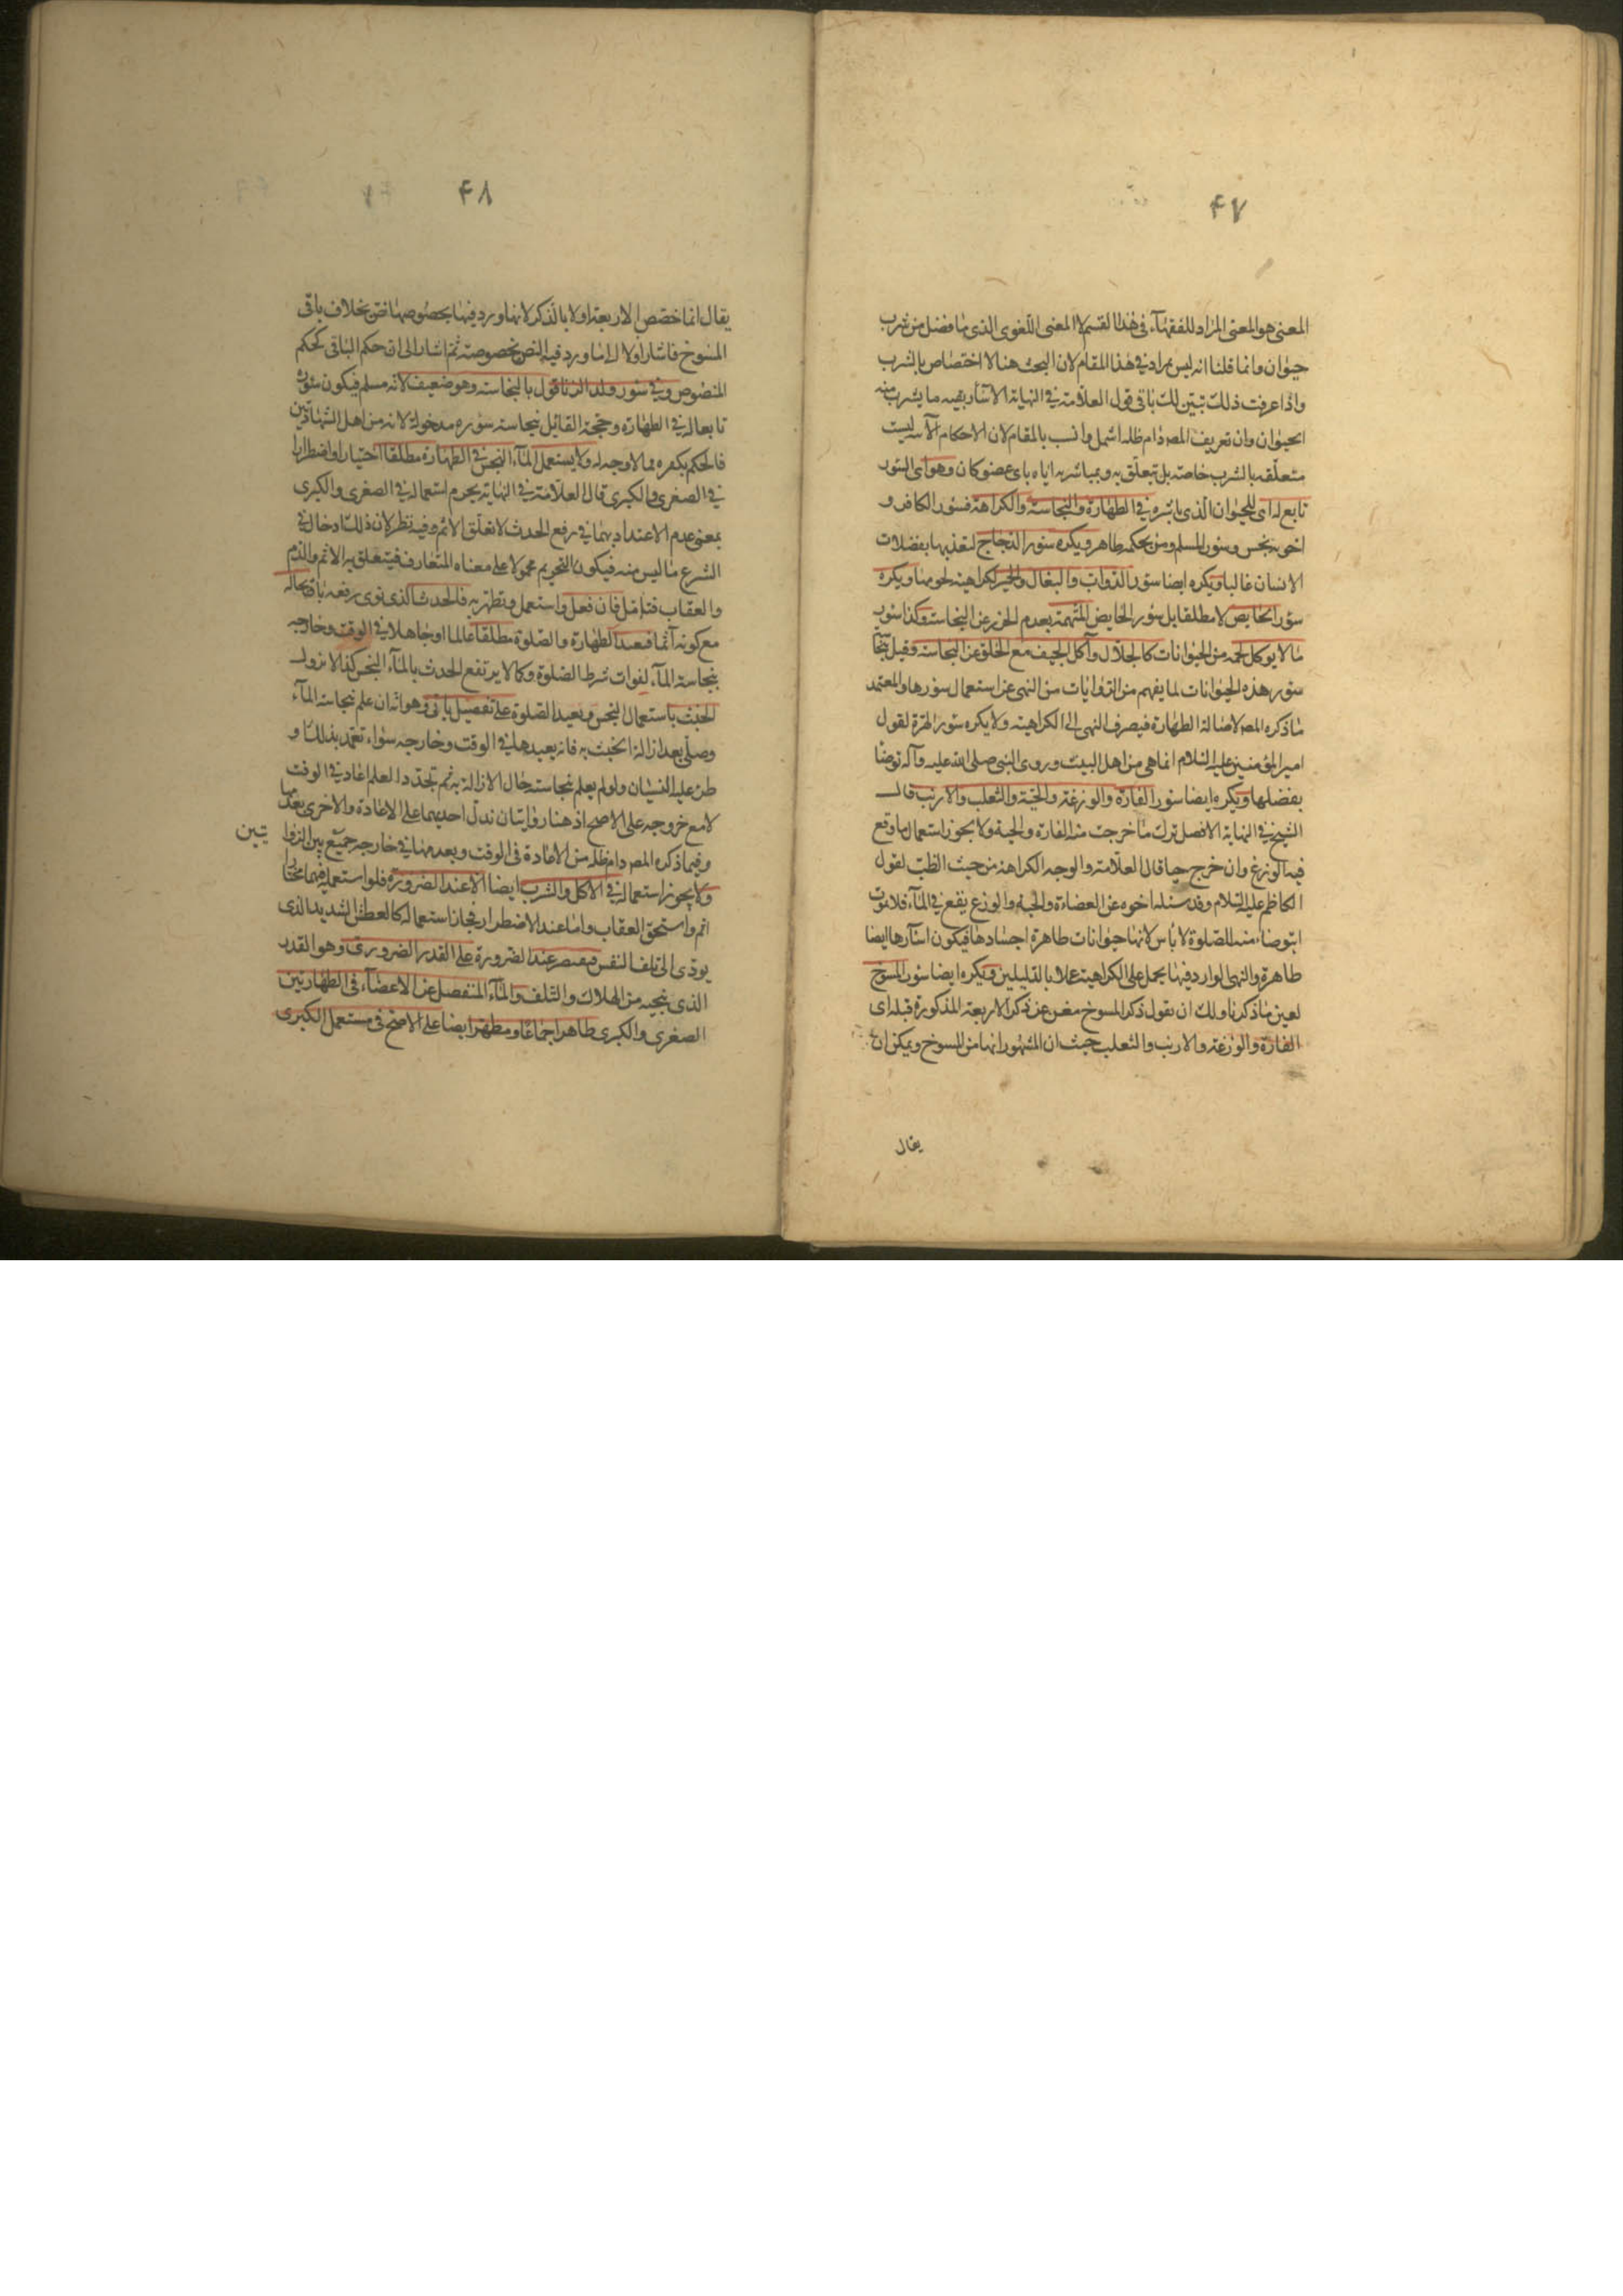 ۴۷
المعنى هو المعنى المراد للفقهاء فى هذا القسم لا المعنى اللغوى الذى ما فضل من شرب
حيوان وانما قلنا انه ليس بمراد فى هذا المقام لان البحث هنا لا اختصاص بالشرب
واذا عرفت ذلك تبين لك باقى قول العلامة فى النهاية الاسآر بقيه ما يشرب منه
الحيوان وان تعريف المصر دام ظله اشمل وانسب بالمقام لان الاحكام الآتيه ليست
متعلقه بالشرب خاصة بل تتعلق به وبمباشرته اياه باى عضو كان وهو اى السئور
تابع له اى للحيوان الذى باشره فى الطهارة والنجاسة والكراهة فسئور الكافر و
اخويه نجس وسئور المسلم ومن بحكمه طاهر ويكره سئور الدجاج لتغذيها بفضلات
الانسان غالبا ويكره ايضا سئور الدواب والبغال والحمير لكراهية لحومها ويكره
سئور الحايض لا مطلقا بل سئور الحايض المتهمة بعدم التحرز عن النجاسة وكذا سئور
ما لا يوكل لحمه من الحيوانات كالجلال وآكل الجيف مع الخلو عن النجاسه وقيل بنجاسة
سئور هذه الحيوانات لما يفهم من الروايات من النهى عن استعمال سئورها والمعتمد
ما ذكره المصر لاصالة الطهارة فيصرف النهى الى الكراهيته ولا يكره سئور الهرة لقول
امير المؤمنين عليه السلام انما هى من اهل البيت وروى النبى صلى الله عليه وآله توضأ
بفضلها ويكره ايضا سئور الفارة والوزغة والحية والثعلب والارنب قال
الشيخ فى النهاية الافضل ترك ما خرجت منه الفارة والحية ولا يجوز استعمال ما وقع
فيه الوزغ وان خرج حيا قال العلامة والوجه الكراهة من حيث الطب لقول
الكاظم عليه السلام وقد سئله اخوه عن العضاءة والحية والوزغ يقع فى الماء فلا يموت
ايتوضأ منه للصلوة لا باس لانها حيوانات طاهرة اجسادها فيكون اسآرها ايضا
طاهرة والنهى الوارد فيها يحمل على الكراهية عملا بالدليلين ويكره ايضا سئور المسوخ
لعين ما ذكرنا ولك ان تقول ذكر المسوخ مغن عن ذكر الاربعة المذكورة قبله اى
الفارة والوزغة والارنب والثعلب حيث ان المشهور انها من المسوخ ويمكن ان
يقال
۴۸
يقال انما خصص الاربعة اولا بالذكر لانها ورد فيها بخصوصها نص بخلاف باقى
المسوخ فاشار اولا الى ما ورد فيه النص بخصوصه ثم اشار الى ان حكم الباقى كحكم
المنصوص وفى سئور ولد الزنا قول بالنجاسة وهو ضعيف لانه مسلم فيكون سئوره
تابعا له فى الطهارة وحجة القائل بنجاسة سئوره مدخولة لانه من اهل الشهادتين
فالحكم بكفره مما لا وجه له ولا يستعمل الماء النجس فى الطهارة مطلقا اختيارا واضطرارا
فى الصغرى والكبرى قال العلامة فى النهاية يحرم استعماله فى الصغرى والكبرى
بمعنى عدم الاعتداد بهما فى رفع الحدث لا تعلق الاثم وفيه نظر لان ذلك ادخال فى
الشرع ما ليس منه فيكون التحريم محمولا على معناه المتعارف فيتعلق به الاثم والذم
والعقاب فتامل فان فعل واستعمل وتطهر به فالحدث الذى نوى رفعه باق بحاله
مع كونه آثما فيعيد الطهارة والصلوة مطلقا عالما او جاهلا فى الوقت وخارجه
بنجاسة الماء لفوات شرط الصلوة وكما لا يرتفع الحدث بالماء النجس كذا لا يزول
الخبث باستعمال النجس ويعيد الصلوة على تفصيل ياتى وهو انه ان علم نجاسة الماء
وصلى بعد ازالة الخبث به فانه يعيدها فى الوقت وخارجه سواء تعمد بذلك او
طرء عليه النسيان ولو لم يعلم نجاسته حال الازالة به ثم تجدد العلم اعاد فى الوقت
لا مع خروجه على الاصح اذ هنا روايتان تدل احديهما على الاعادة والاخرى بعدمها
وفيما ذكره المصر دام ظله من الاعادة فى الوقت وبعدمها فى خارجه جمع بين الروا يتين
ولا يجوز استعماله فى الاكل والشرب ايضا الا عند الضرورة فلو استعمله فيهما مختارا
اثم واستحق العقاب واما عند الاضطرار فجاز استعماله كالعطش الشديد الذى
يودى الى تلف النفس فيقتصر عند الضرورة على القدر الضرورى وهو القدر
الذى ينجيه من الهلاك والتلف والماء المنفصل عن الاعضاء فى الطهارتين
الصغرى والكبرى طاهر اجماعا ومطهر ايضا على الاصح فى مستعمل الكبرى